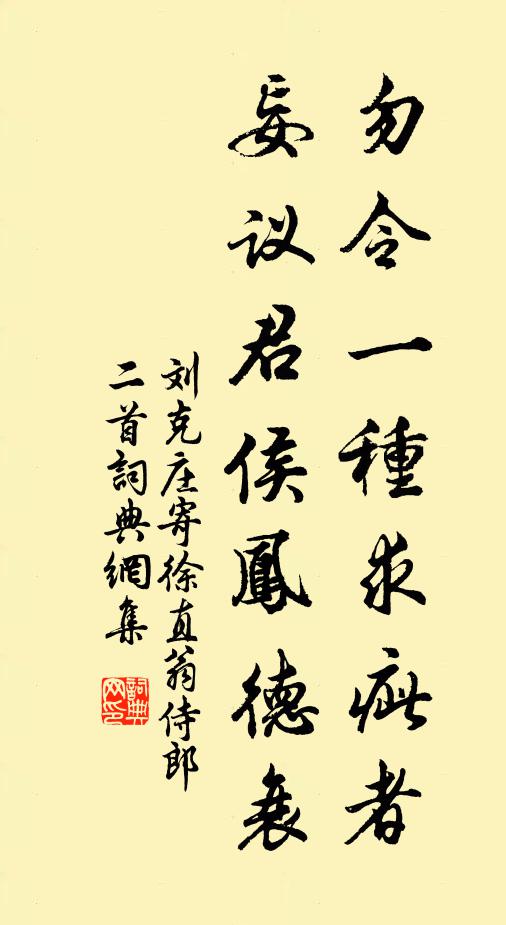 勿令一種求疵者
妄议君侯鳳德衰
刘克庄寄徐直翁侍郎
二首詞典網集
詞典
网印